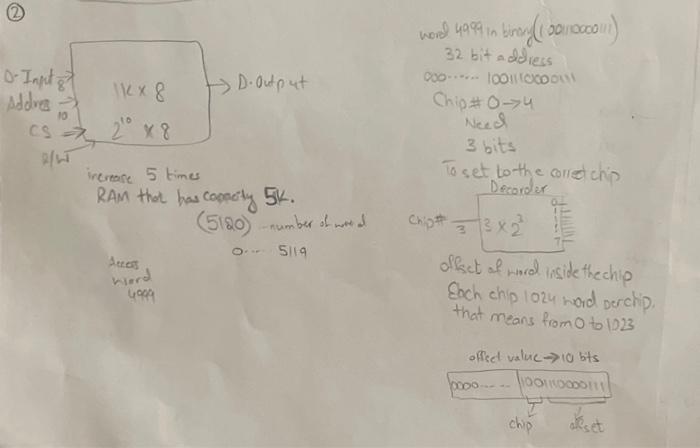 2
D-Input 8
Address
10
CS
R/W
1K x 8
2^10 x 8
D.Output
increase 5 times
RAM that has capacity 5K.
(5120) number of word
0..... 5119
Access
word
4999
word 4999 in binary(1001110000111)
32 bit address
000...... 1001110000111
Chip# 0→4
Need
3 bits
To set to the correct chip
Decorder
Chip#
3
3 x 2^3
0
7
offset of word inside the chip
Each chip 1024 word per chip.
that means from 0 to 1023
offset value → 10 bits
0000..... 1001110000111
chip offset